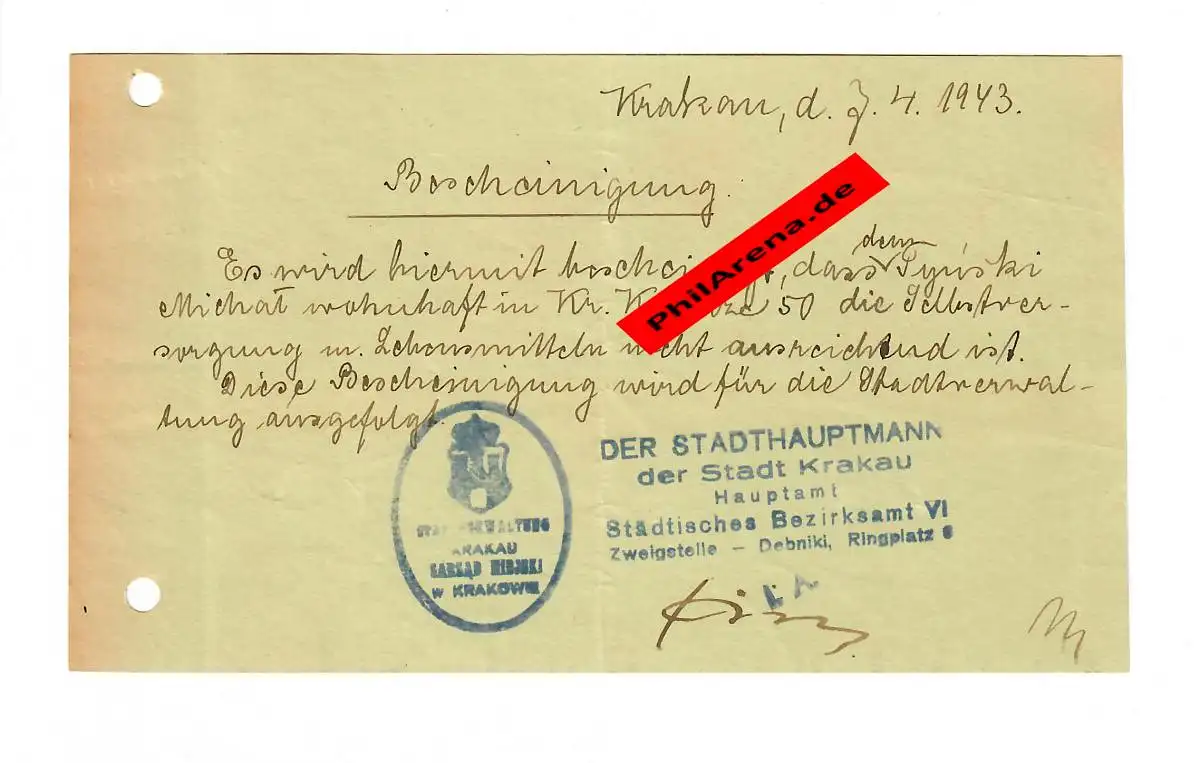 Krakau, d. 7. 4. 1943.
Bescheinigung.
Es wird hiermit beschei , dass dem Tyński
Michał wohnhaft in Kr. 50 die Selbstver-
sorgung m. Lebensmitteln nicht ausreichend ist.
Diese Bescheinigung wird für die Stadtverwal-
tung ausgefolgt.
PhilArena.de
DER STADTHAUPTMANN
der Stadt Krakau
Hauptamt
Städtisches Bezirksamt VI
Zweigstelle — Debniki, Ringplatz 6
STADTVERWALTUNG
KRAKAU
ZARZĄD MIEJSKI
W KRAKOWIE